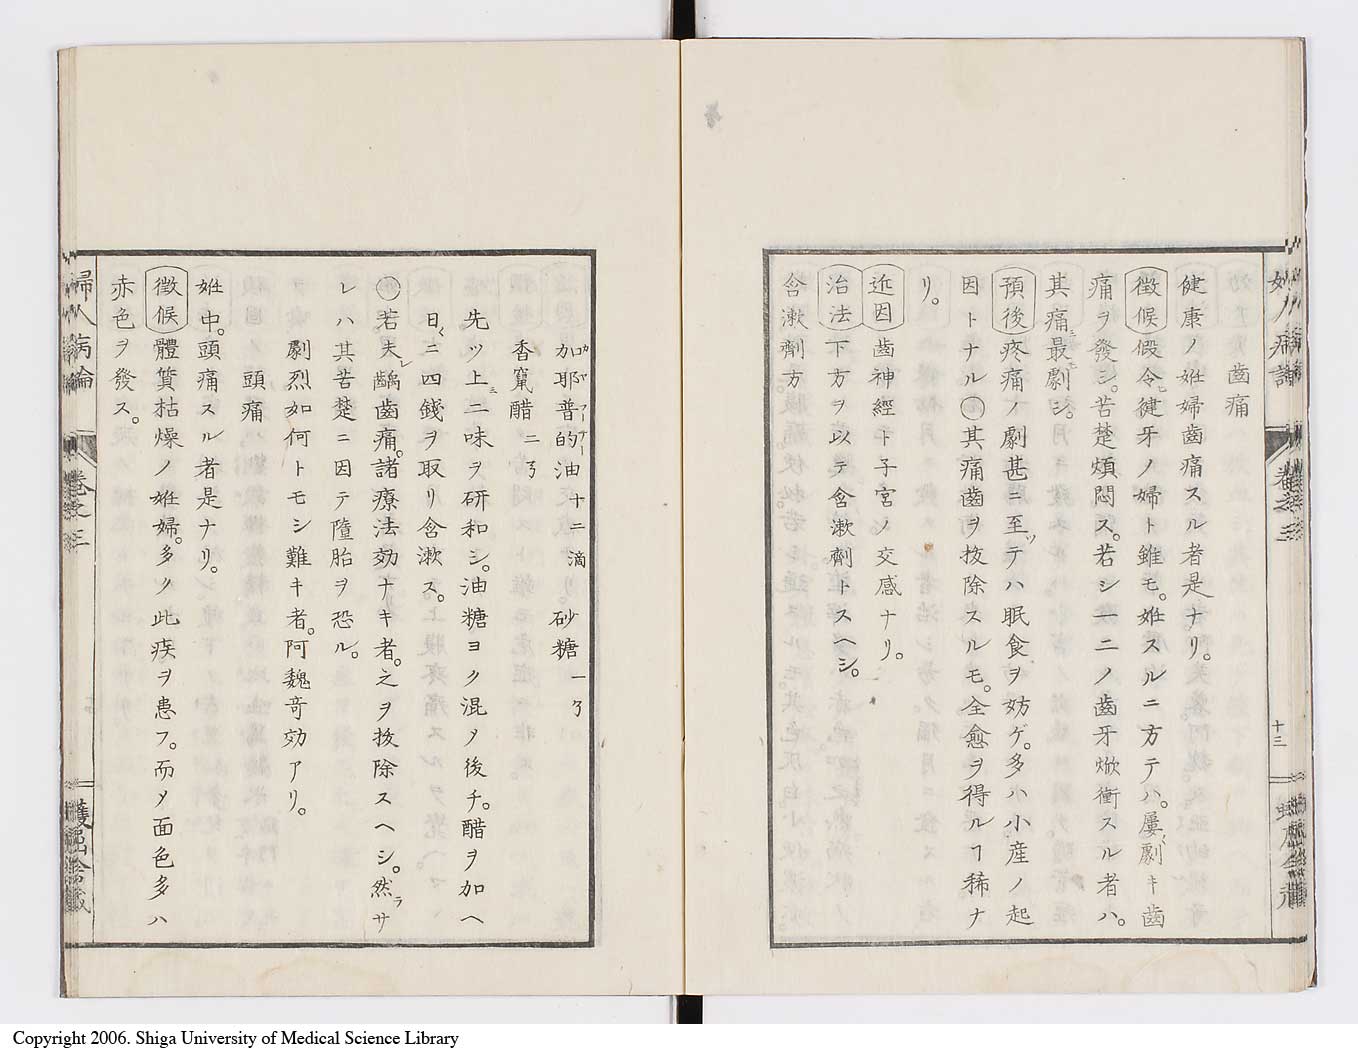 齒痛
健康ノ姙婦齒痛スル者是ナリ。
徴候假令健牙ノ婦ト雖モ。姙スルニ方テハ。屢劇キ齒
痛ヲ發シ。苦楚煩悶ス。若シ一二ノ齒牙焮衝スル者ハ。
其痛最モ劇シ。
預後疼痛ノ劇甚ニ至ッテハ眠食ヲ妨ゲ。多ハ小産ノ起
因トナル〇其痛齒ヲ抜除スルモ。全愈ヲ得ルヿ稀ナ
リ。
近因 齒神經ト子宮ノ交感ナリ。
治法下方ヲ以テ含漱劑トスヘシ。
含漱劑方。
十三
加耶普的油十二滴 砂糖一ゟ
香竄醋二ゟ
先ツ上ニ二味ヲ研和シ。油糖ヨク混メ後チ。醋ヲ加ヘ
日ニ四錢ヲ取リ含漱ス。
〇若夫レ齲齒痛。諸療法効ナキ者。之ヲ抜除スヘシ。然ラサ
レハ其苦楚ニ因テ墮胎ヲ恐ル。
劇烈如何トモシ難キ者。阿魏奇効アリ。
頭痛
姙中。頭痛スル者是ナリ。
徴候體質枯燥ノ姙婦。多ク此疾ヲ患フ。而メ面色多ハ
赤色ヲ發ス。
婦人病論 卷之三
Copyright 2006. Shiga University of Medical Science Library